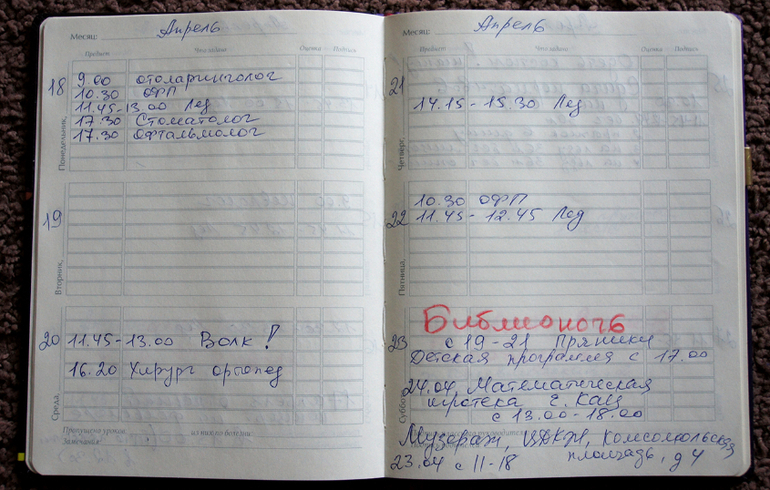 Месяц: Апрель
Предмет Что задано Оценка Подпись
18 9.00 отоларинголог
10.30 ОФП
11.45-13.00 Лед
17.30 Стоматолог
17.30 Офтальмолог
Понедельник,
19
Вторник,
20 11.45-13.00 Волк!
16.20 Хирург ортопед
Среда,
Пропущено уроков, из них по болезни
Замечания
Месяц: Апрель
Предмет Что задано Оценка Подпись
21
14.15 - 15.30 Лед
Четверг,
10.30 ОФП
22 11.45 - 12.45 Лед
Пятница,
Библионочь
23 с 19-21 Пряники
Детская программа с 17.00
24.04 Математическая
игротека г. Кац
с 13.00-18.00
Суббота,
Музораж, ЦДКЖ, Комсомольская
23.04 с 11-18 площадь, д 4